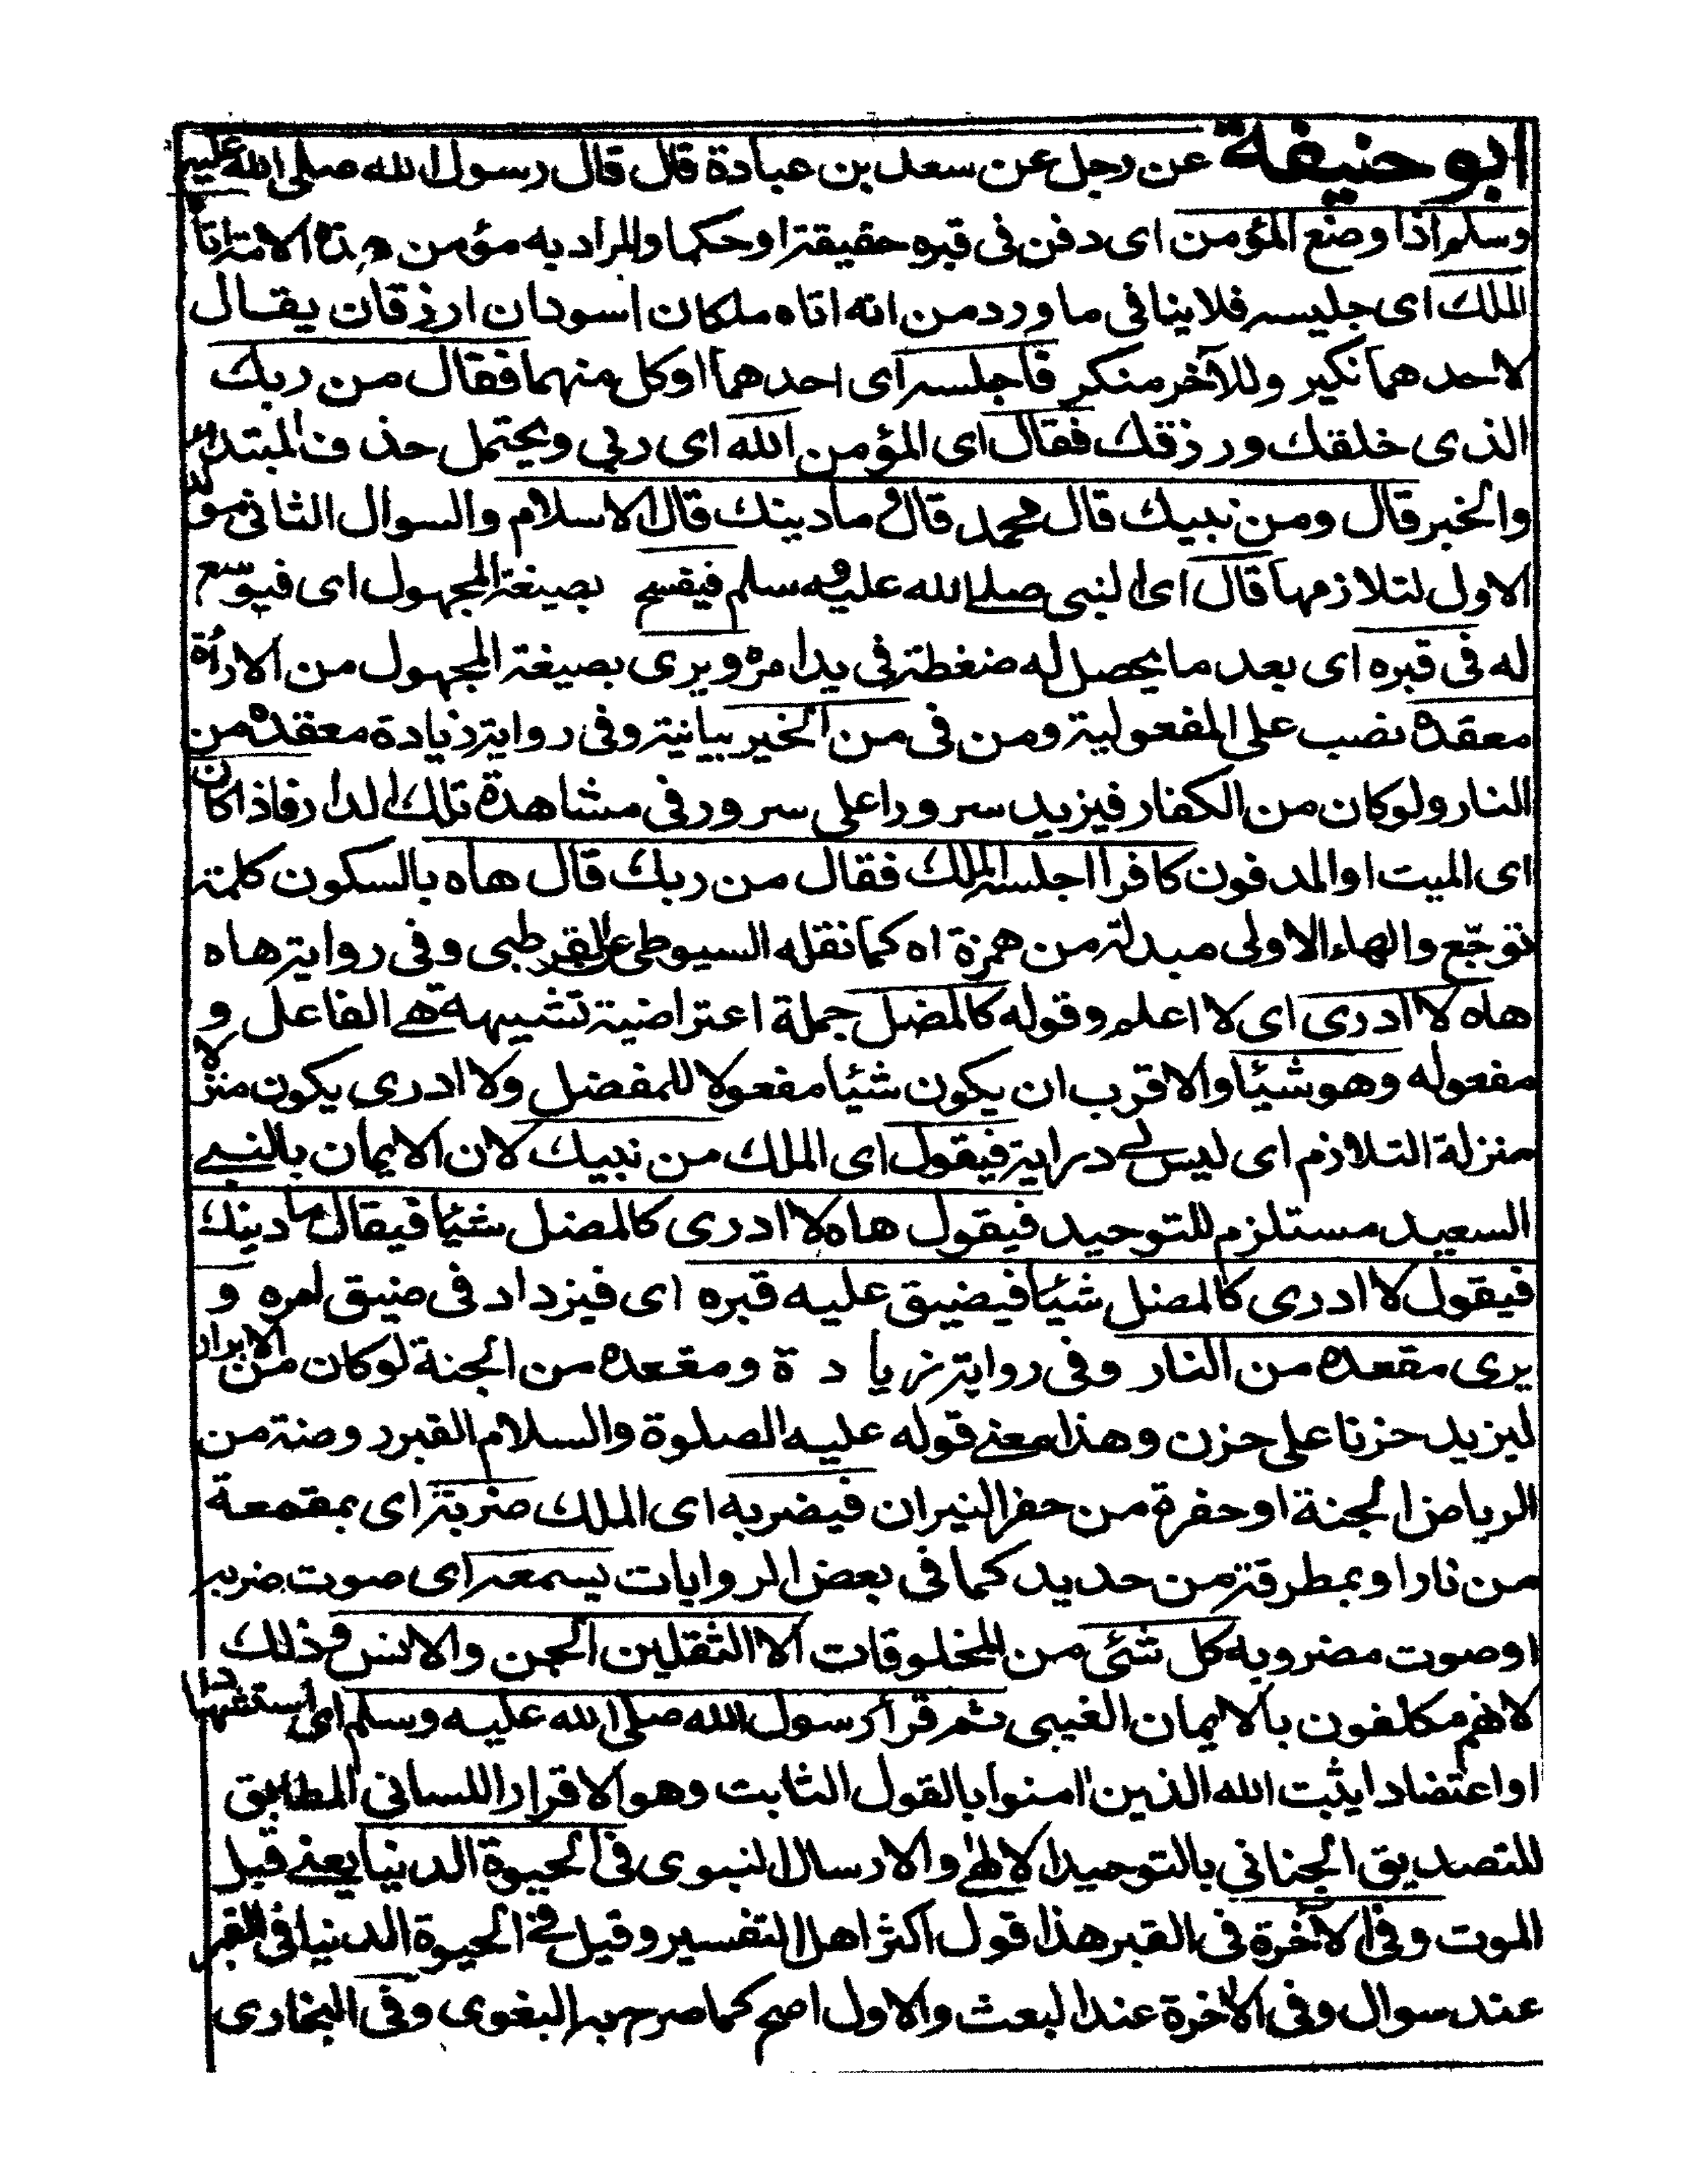 ابو حنيفة عن رجل عن سعد بن عبادة قال قال رسول الله صلى الله عليه
وسلم اذا وضع المؤمن اى دفن فى قبره حقيقة او حكما والمراد به مؤمن هذه الامة اتاه
الملك اى جليسه فلا ينافى ما ورد من انه اتاه ملكان اسودان ارزقان يقال
لاحدهما نكير وللآخر منكر فاجلسه اى احدهما او كل منهما فقال من ربك
الذى خلقك ورزقك فقال اى المؤمن الله اى ربي ويحتمل حذف المبتدا
والخبر قال ومن نبيك قال محمد قال وما دينك قال الاسلام والسوال الثانى
الاول لتلازمها قال اى النبى صلے الله عليه وسلم فيفسح بصيغة المجهول اى فيوسع
له فى قبره اى بعد ما يحصل له ضغطة فى يدا مره ويرى بصيغة المجهول من الاراءة
معقده نصب على المفعولية ومن فى من الخير بيانية وفى رواية زيادة معقده من
النار ولو كان من الكفار فيزيد سرورا على سرور فى مشاهدة تلك الدار فاذا كان
اى الميت او المدفون كافرا اجلسه الملك فقال من ربك قال هاه بالسكون كلمة
توجّع والهاء الاولى مبدلة من همزة اه كما نقله السيوطى عن القرطبى وفى رواية هاه
هاه لا ادرى اى لا اعلم وقوله كالمضل جملة اعتراضية تشبيهة هے الفاعل و
مفعوله وهو شيئا والاقرب ان يكون شيئا مفعولا للمفضل ولا ادرى يكون منزلا
منزلة التلازم اى ليس لے دراية فيقول اى الملك من نبيك لان الايمان بالنبے
السعيد مستلزم للتوحيد فيقول هاه لا ادرى كالمضل شيئا فيقال ما دينك
فيقول لا ادرى كالمضل شيئا فيضيق عليه قبره اى فيزداد فى ضيق امره و
يرى مقعده من النار وفى رواية زيادة ومقعده من الجنة لو كان من الابرار
ليزيد حزنا على حزن وهذا معنے قوله عليه الصلوة والسلام القبر روضة من
الرياض الجنة او حفرة من حفر النيران فيضربه اى الملك ضربة اى بمقمعة
من نار او بمطرقة من حديد كما فى بعض الروايات يسمعه اى صوت ضربه
او صوت مضروبه كل شئى من المخلوقات الا الثقلين الجن والانس وذلك
لانهم مكلفون بالايمان الغيبى ثم قرأ رسول الله صلى الله عليه وسلم اى استشهادا
او اعتضادا يثبت الله الذين امنوا بالقول الثابت وهو الاقرار اللسانى المطابق
للتصديق الجنانى بالتوحيد الالهٰے والارسال النبوى فى الحيوة الدنيا يعنے قبل
الموت وفى الآخرة فى القبر هذا قول اكثر اهل التفسير وقيل فے الحيوة الدنيا فى القبر
عند سوال وفى الآخرة عند البعث والاول اصح كما صرح به البغوى وفى البخارى